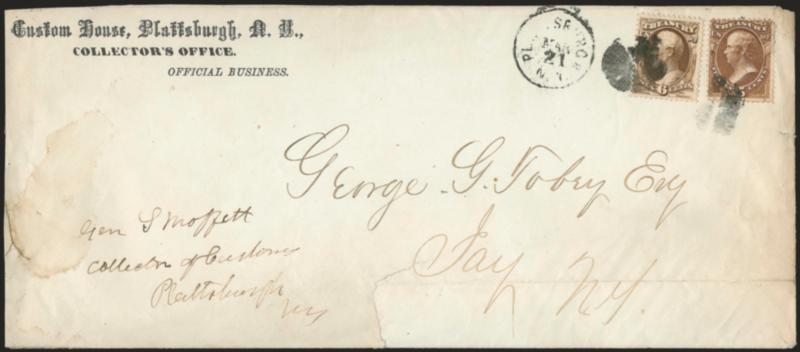 Custom House, Plattsburgh, N. Y.,
COLLECTOR'S OFFICE.
OFFICIAL BUSINESS.
MAR
21
N.Y.
TREASURY
6
TREASURY
CENTS
George G. Tobey Esq
Jay NY.
Gen S Moffett
Collector of Customs
Plattsburgh
NY